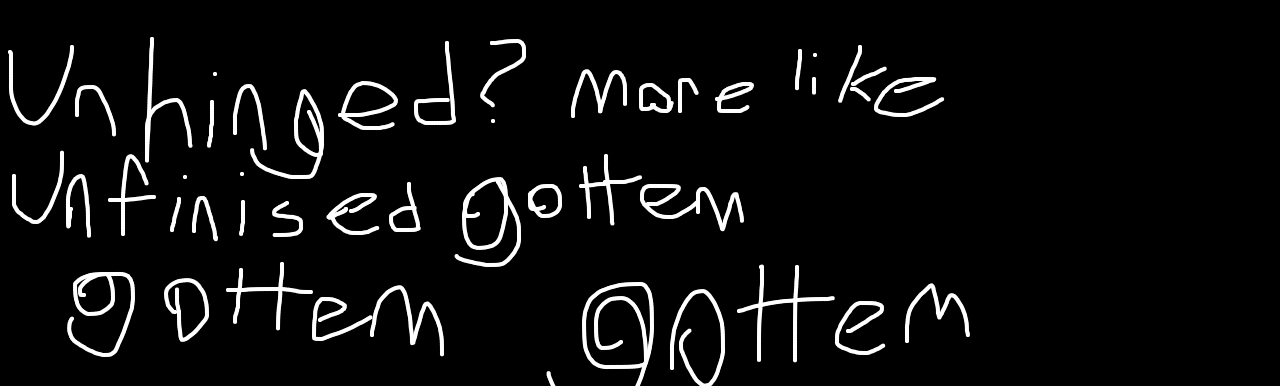 Unhinged? more like
Unfinised gottem
gottem gottem